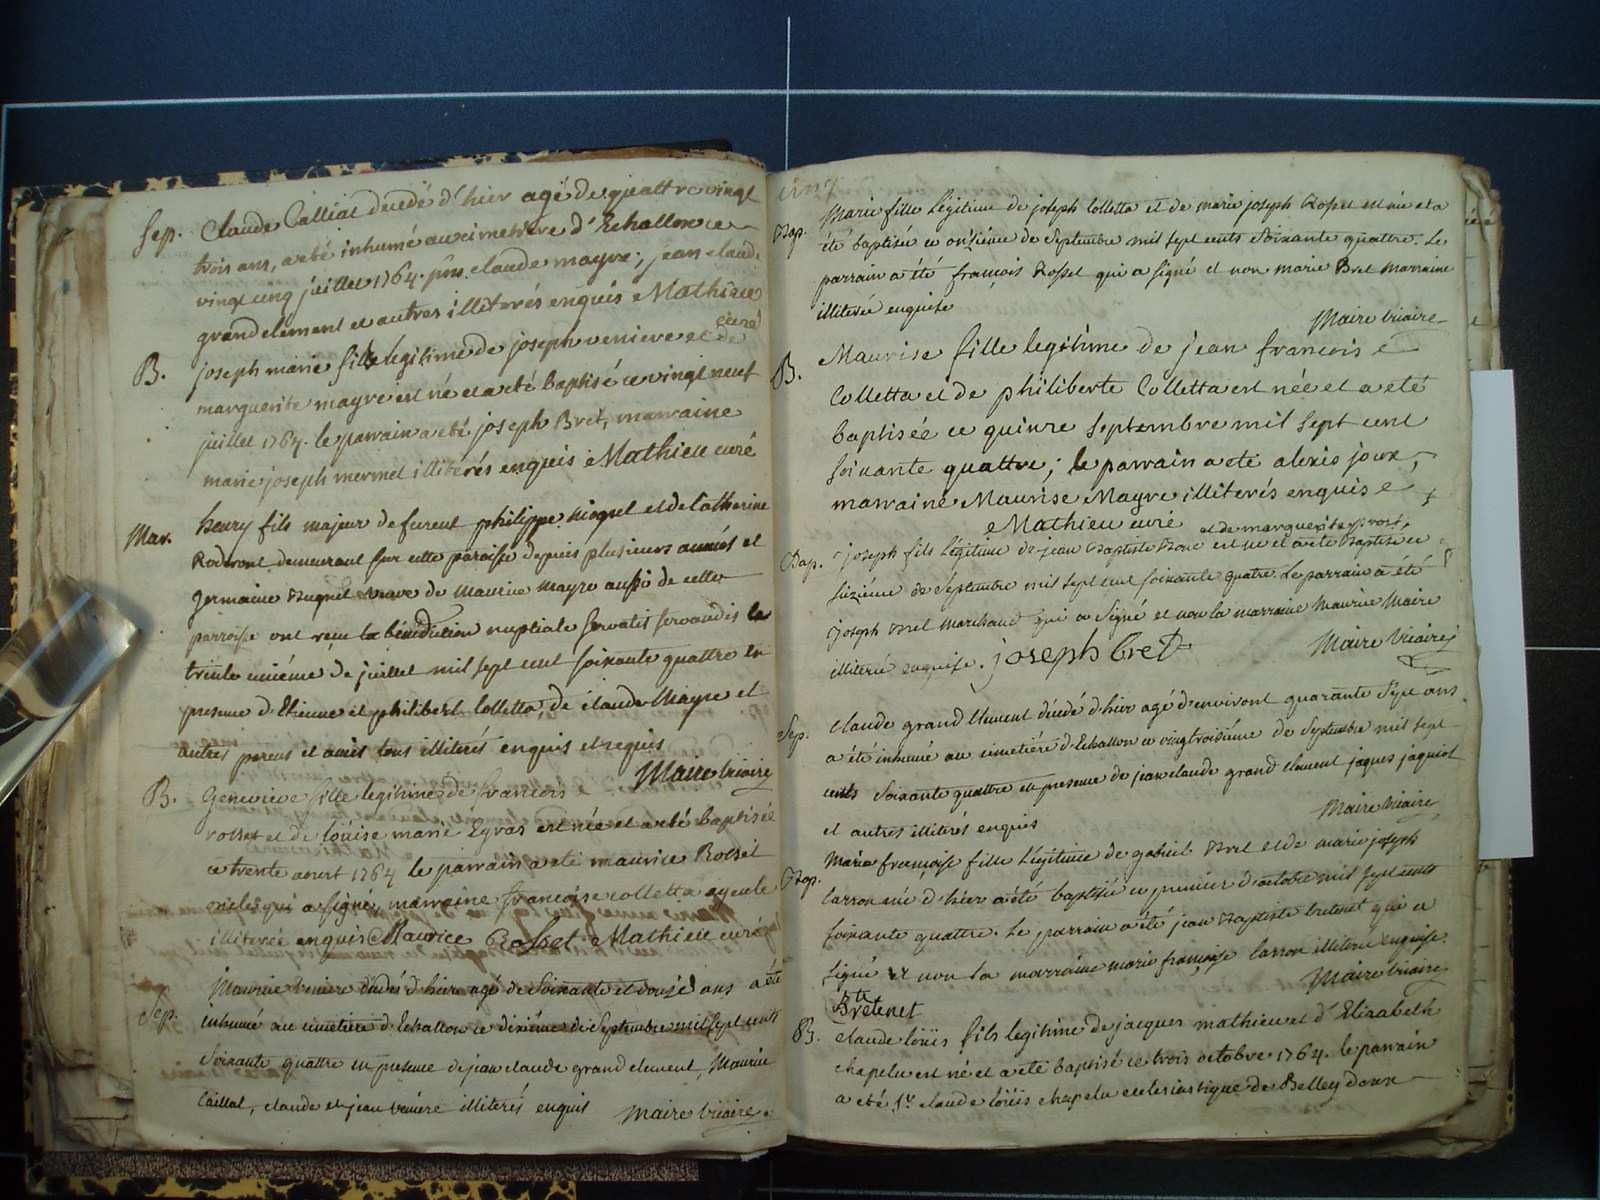 Sep. Claude Calliat décédé d'hier agé de quattre vingt
trois ans, a eté inhumé au cimetière d'Echallon ce
vingt cinq juillet 1764. pns. claude mayre; jean claude
grandclement et autres illiterés enquis Mathieu
curé
B. joseph marie fils legitime de joseph veniere et de
marguerite mayre est né et a eté baptisé ce vingt neuf
juillet 1764. le parrain a eté joseph Bret, marraine
marie joseph mermet illiterés enquis Mathieu curé
Mar. henry fils majeur de furent philippe et de Catherine
demeurant sur cette paroisse depuis plusieurs années et
germaine veuve de Maurice Mayre aussi de cette
parroisse ont reçu la bénédiction nuptiale servatis servandis le
trente unième de juillet mil sept cent soixante quattre en
presence d'Etienne et philibert Colletta, de claude Mayre et
autres parens et amis tous illiterés enquis et requis
Maire vicaire
B. Genevieve fille legitime de francois
rosset et de loüise marie Egras est née et a eté baptisée
ce trente aoust 1764 le parrain a eté maurice Rosset
oncle qui a signé, marraine francoise colletta ayeule
illiterée enquis Maurice Rosset Mathieu curé
Sep. Maurice veniere décédé d'hier agé de soixante et douze ans a été
inhumé au cimetière d'Echallon ce dixième de Septembre mil sept cents
soixante quattre en presence de jean claude grand clement, Maurice
Caillat, claude et jean veniere illiterés enquis Maire vicaire
Bap. Marie fille Légitime de joseph Colletta et de marie joseph Rosset est née et a
été baptisée ce onzième de Septembre mil sept cents soixante quattre. Le
parrain a été françois Rosset qui a signé et non marie Bret marraine
illiterée enquise
Maire vicaire
B. Maurise fille legitime de jean francois
Colletta et de philiberte Colletta est née et a eté
baptisée ce quinze septembre mil sept cent
soixante quattre; le parrain a eté alexis joux,
marraine Maurise Mayre illiterés enquis
Mathieu curé
et de marguerite
Bap. joseph fils Légitime de jean Baptiste est né et a été Baptisé ce
sixième de Septembre mil sept cent soixante quatre. Le parrain a été
joseph Bret marchand qui a signé et non la marraine Maurise Maire
illiterée enquise. joseph bret Maire vicaire
Sep. Claude grand Clement décédé d'hier agé d'environt quarante Sept ans
a été inhumé au cimetière d'Echallon ce vingtroisième de Septembre mil sept
cents soixante quattre en presence de jean claude grand clement jaques jaquiot
et autres illiterés enquis
Maire vicaire
Bap. Marie françoise fille Légitime de gabriel Bret et de marie joseph
Carron née d'hier a été baptisée ce premier d'octobre mil sept cents
soixante quattre. Le parrain a été jean Baptiste bretenet qui a
signé et non la marraine marie françoise Carron illiterée enquise.
Maire vicaire
Bte
Bretenet
B. Claude loüis fils legitime de jacques mathieu et d'Elizabeth
chapelu est né et a eté baptisé ce trois octobre 1764. le parrain
a eté Sr. claude loüis chapelu eclesiastique de Belley